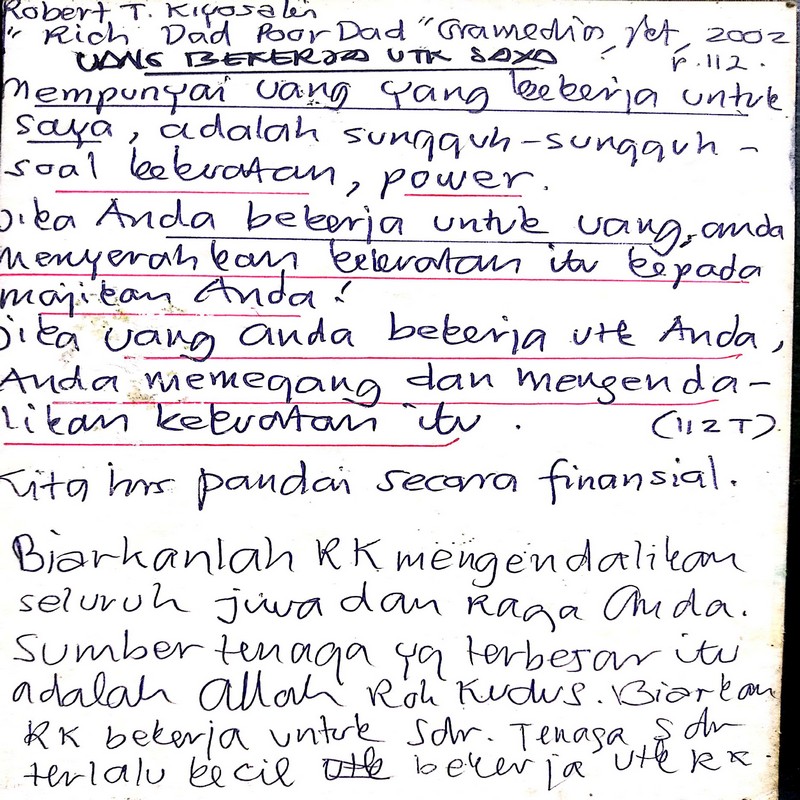 Robert T. Kiyosaki
"Rich Dad Poor Dad" Gramedia, Jkt, 2002
UANG BEKERJA UTK SAYA r.112.
Mempunyai uang yang bekerja untuk
saya, adalah sungguh-sungguh -
soal kekuatan, power.
Jika Anda bekerja untuk uang, anda
menyerahkan kekuatan itu kepada
majikan Anda!
Jika uang anda bekerja utk Anda,
Anda memegang dan mengenda-
likan kekuatan itu. (112T)
Kita hrs pandai secara finansial.
Biarkanlah RK mengendalikan
seluruh jiwa dan Raga Anda.
Sumber tenaga yg terbesar itu
adalah Allah Roh Kudus. Biarkan
RK bekerja untuk Sdr. Tenaga Sdr
terlalu kecil utk bekerja utk RK.